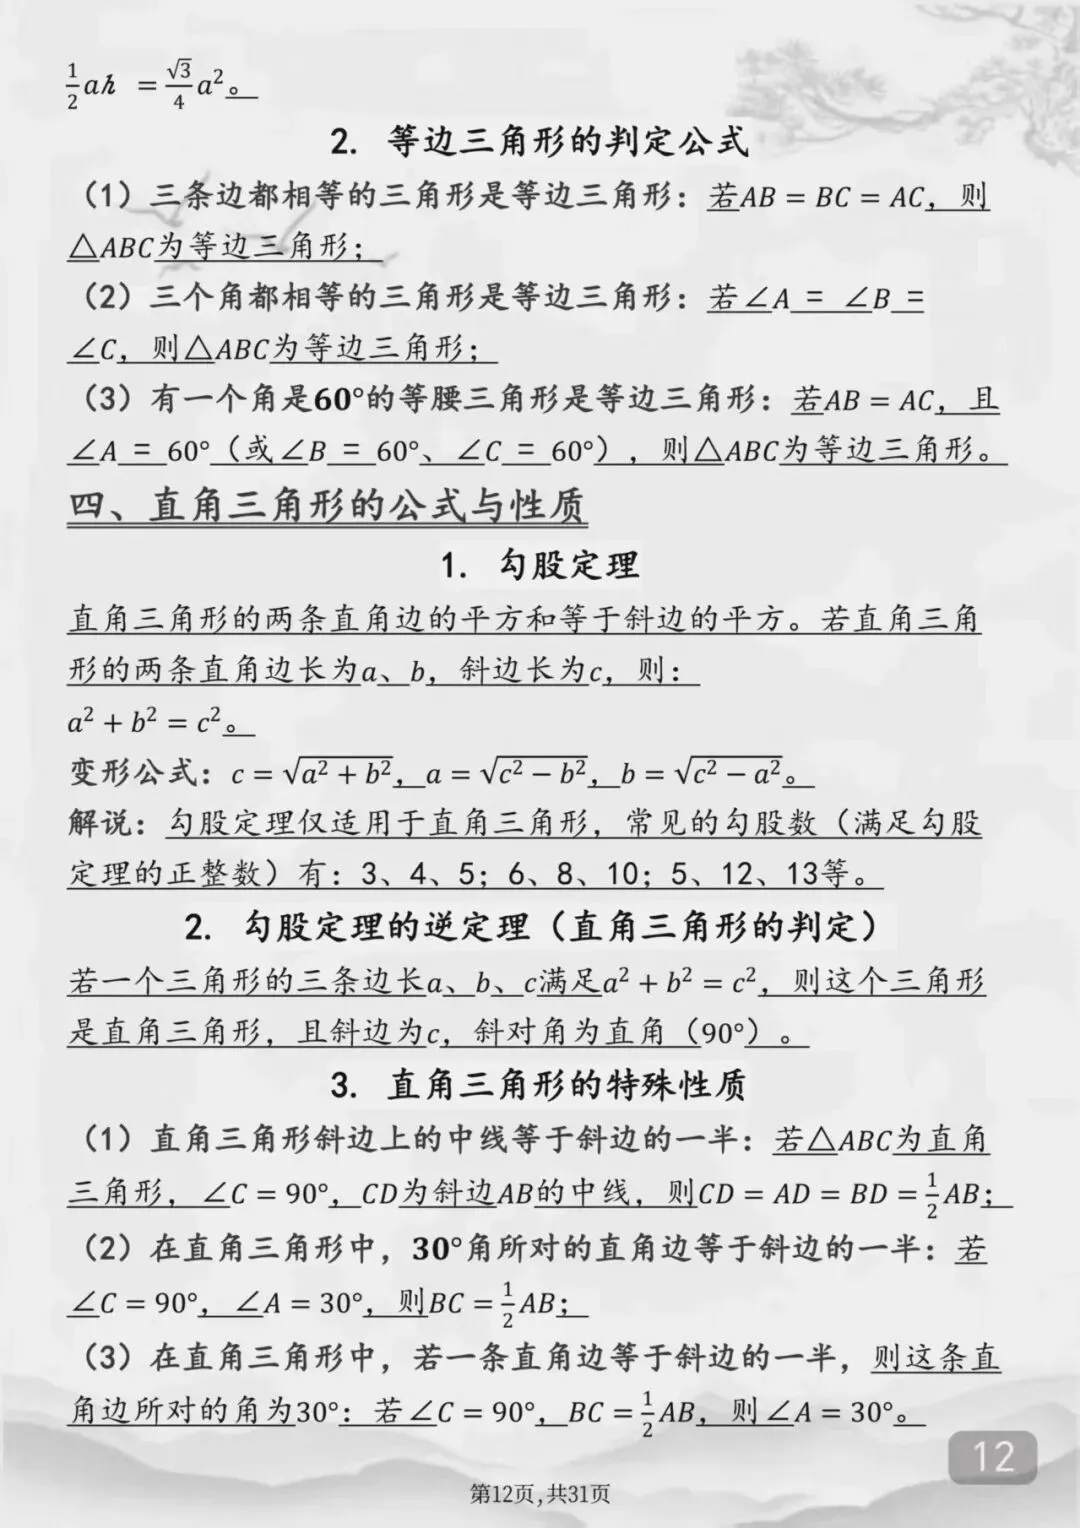 ½ah = √3/4 a²。
2. 等边三角形的判定公式
（1）三条边都相等的三角形是等边三角形：若AB = BC = AC，则
△ABC为等边三角形；
（2）三个角都相等的三角形是等边三角形：若∠A = ∠B =
∠C，则△ABC为等边三角形；
（3）有一个角是60°的等腰三角形是等边三角形：若AB = AC，且
∠A = 60°（或∠B = 60°、∠C = 60°），则△ABC为等边三角形。
四、直角三角形的公式与性质
1. 勾股定理
直角三角形的两条直角边的平方和等于斜边的平方。若直角三角
形的两条直角边长为a、b，斜边长为c，则：
a² + b² = c²。
变形公式：c = √(a² + b²)，a = √(c² − b²)，b = √(c² − a²)。
解说：勾股定理仅适用于直角三角形，常见的勾股数（满足勾股
定理的正整数）有：3、4、5；6、8、10；5、12、13等。
2. 勾股定理的逆定理（直角三角形的判定）
若一个三角形的三条边长a、b、c满足a² + b² = c²，则这个三角形
是直角三角形，且斜边为c，斜对角为直角（90°）。
3. 直角三角形的特殊性质
（1）直角三角形斜边上的中线等于斜边的一半：若△ABC为直角
三角形，∠C = 90°，CD为斜边AB的中线，则CD = AD = BD = ½AB；
（2）在直角三角形中，30°角所对的直角边等于斜边的一半：若
∠C = 90°，∠A = 30°，则BC = ½AB；
（3）在直角三角形中，若一条直角边等于斜边的一半，则这条直
角边所对的角为30°：若∠C = 90°，BC = ½AB，则∠A = 30°。
12
第12页,共31页